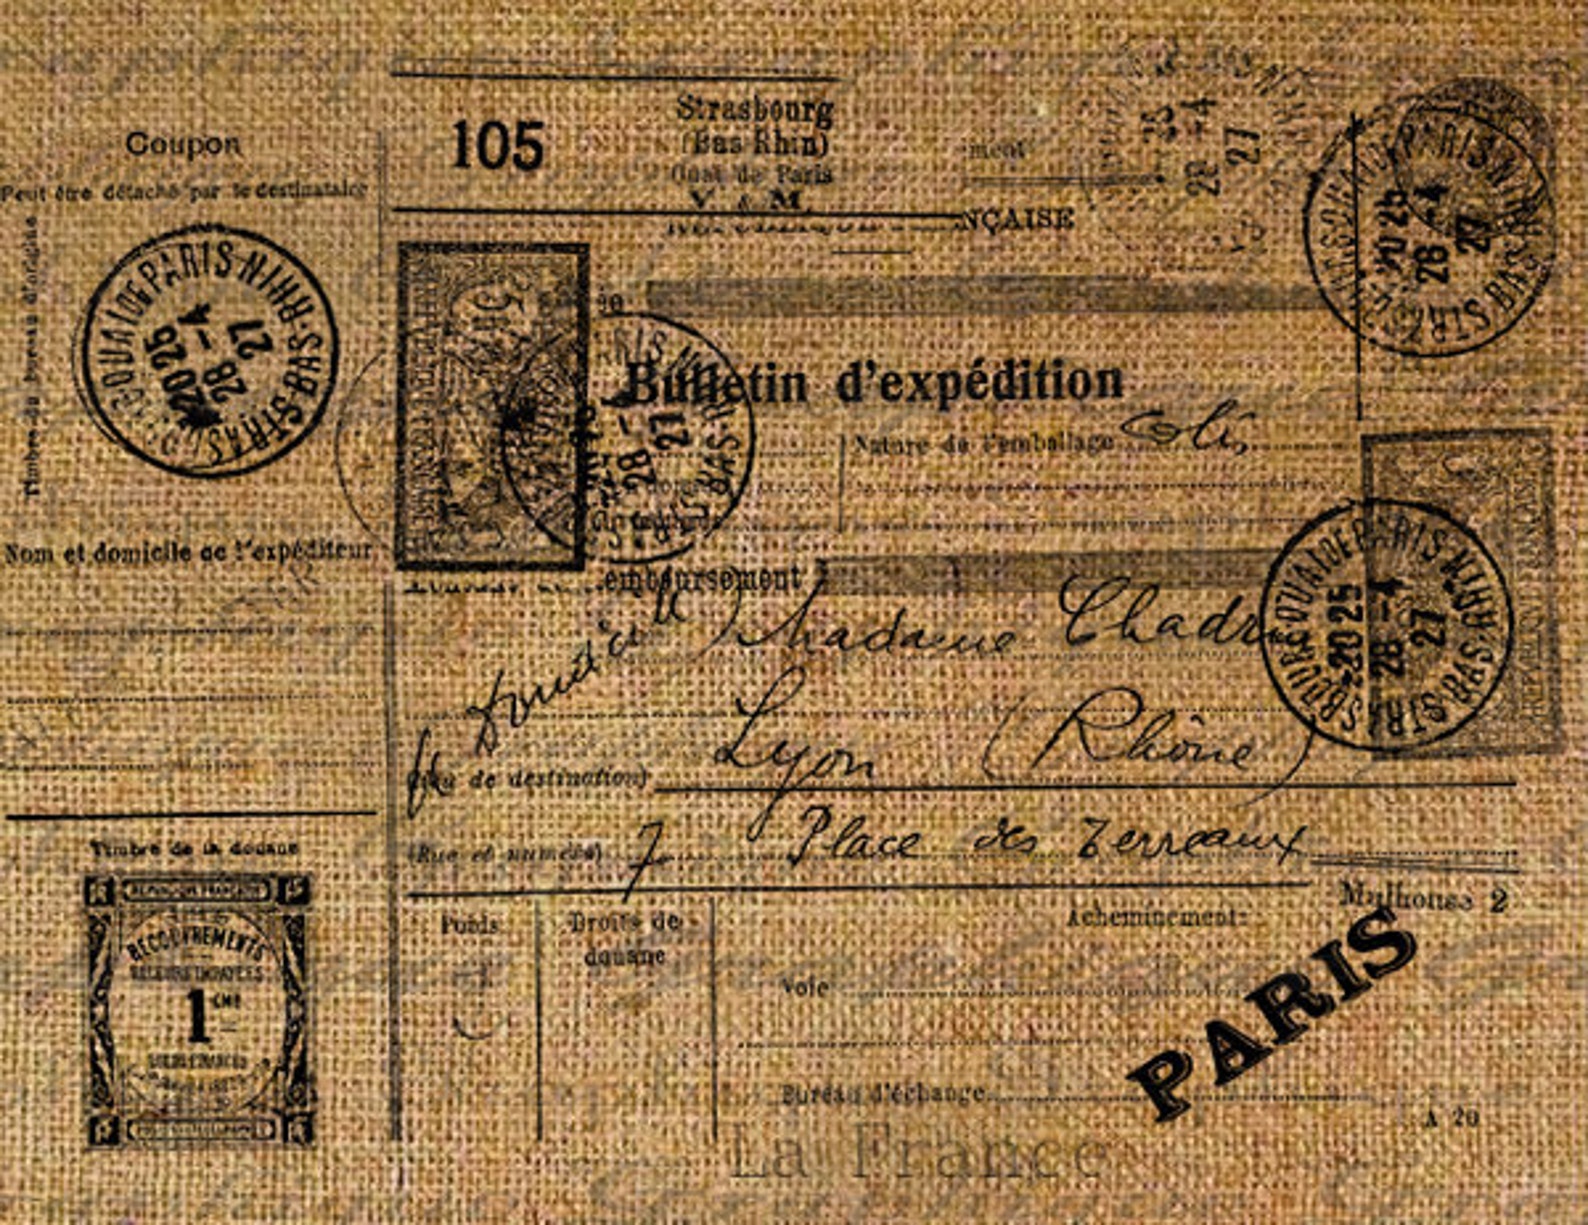 Coupon
Peut être détaché par le destinataire
Timbre du bureau d'origine
105
Strasbourg
(Bas Rhin)
Quai de Paris
V & M
ment
NÇAISE
28 -4
27
QUAI DE PARIS-NIHR-SAB
STRAS
20 25
28 -4
27
PARIS
20 25
28 -4
27
STR BAS
Bulletin d'expédition
28 -
27
BAS
Nature de l'emballage Colis
Nom et domicile de l'expéditeur
emboursement
à domicile
Madame Chadr
QUAI DE PARIS-NIHR-SAB
STRASBOURG
20 25
28 -4
27
Lyon (Rhône)
de destination)
(Rue et numéro) 7 Place des Terreaux
Timbre de la douane
RECOUVREMENTS
VALEURS IMPAYÉES
1
Poids
Droits de
douane
Acheminement
Mulhouse 2
PARIS
Voie
Bureau d'échange
A 20
La France